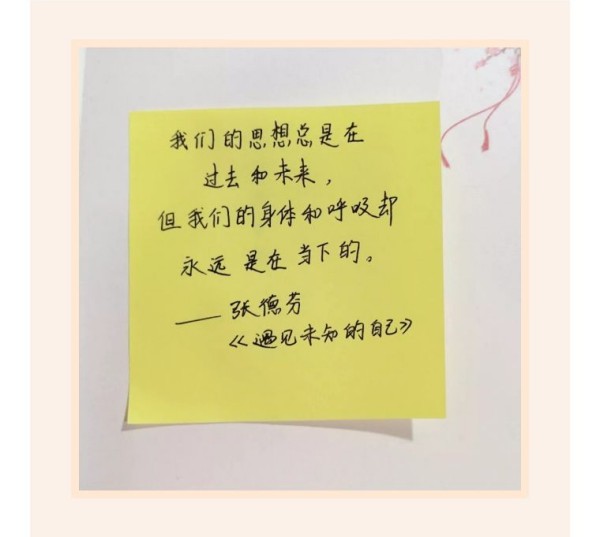 我们的思想总是在
过去和未来，
但我们的身体和呼吸却
永远是在当下的。
——张德芬
《遇见未知的自己》